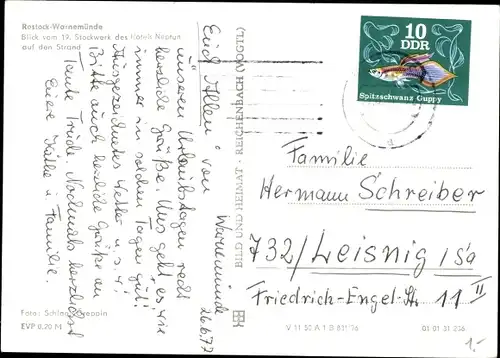 Rostock-Warnemünde
Blick vom 19. Stockwerk des Hotels Neptun
auf den Strand
Warnemünde
26.6.77
Euch Allen von
unseren Urlaubstagen recht
herzliche Grüße. Uns geht es wie
immer in solchen Tagen gut!
Ausgezeichnetes Wetter u.s.w.
Bitte auch herzliche Grüße an
Tante Trude. Nochmals herzlichst
Eure Käthe u. Familie.
Foto: Schlag, Greppin
EVP 0,20 M
BILD UND HEIMAT · REICHENBACH (VOGTL)
10
DDR
Spitzschwanz Guppy
Familie
Hermann Schreiber
732/Leisnig i/Sa
Friedrich-Engel-Str. 11 II
V 11 50 A 1 B
01 01 31 236
1.-